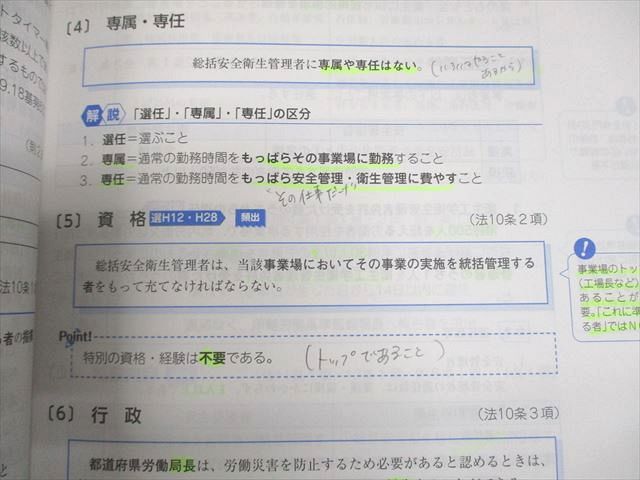 トタイマー
亥数以上で
するもので
9.18基発
〔4〕 専属・専任
総括安全衛生管理者に専属や専任はない。(いろいろやること
あるから)
解説 「選任」・「専属」・「専任」の区分
1. 選任＝選ぶこと
2. 専属＝通常の勤務時間をもっぱらその事業場に勤務すること
3. 専任＝通常の勤務時間をもっぱら安全管理・衛生管理に費やすこと
"その仕事だけ"
〔5〕 資 格 選H12・H28 頻出 (法10条2項)
総括安全衛生管理者は、当該事業場においてその事業の実施を統括管理する
者をもって充てなければならない。
!
事業場のトッ
(工場長など)
あることが
要。「これに準
る者」ではN
法10条
Point!
特別の資格・経験は不要である。 (トップであること)
〔6〕 行 政 (法10条3項)
都道府県労働局長は、労働災害を防止するため必要があると認めるときは、